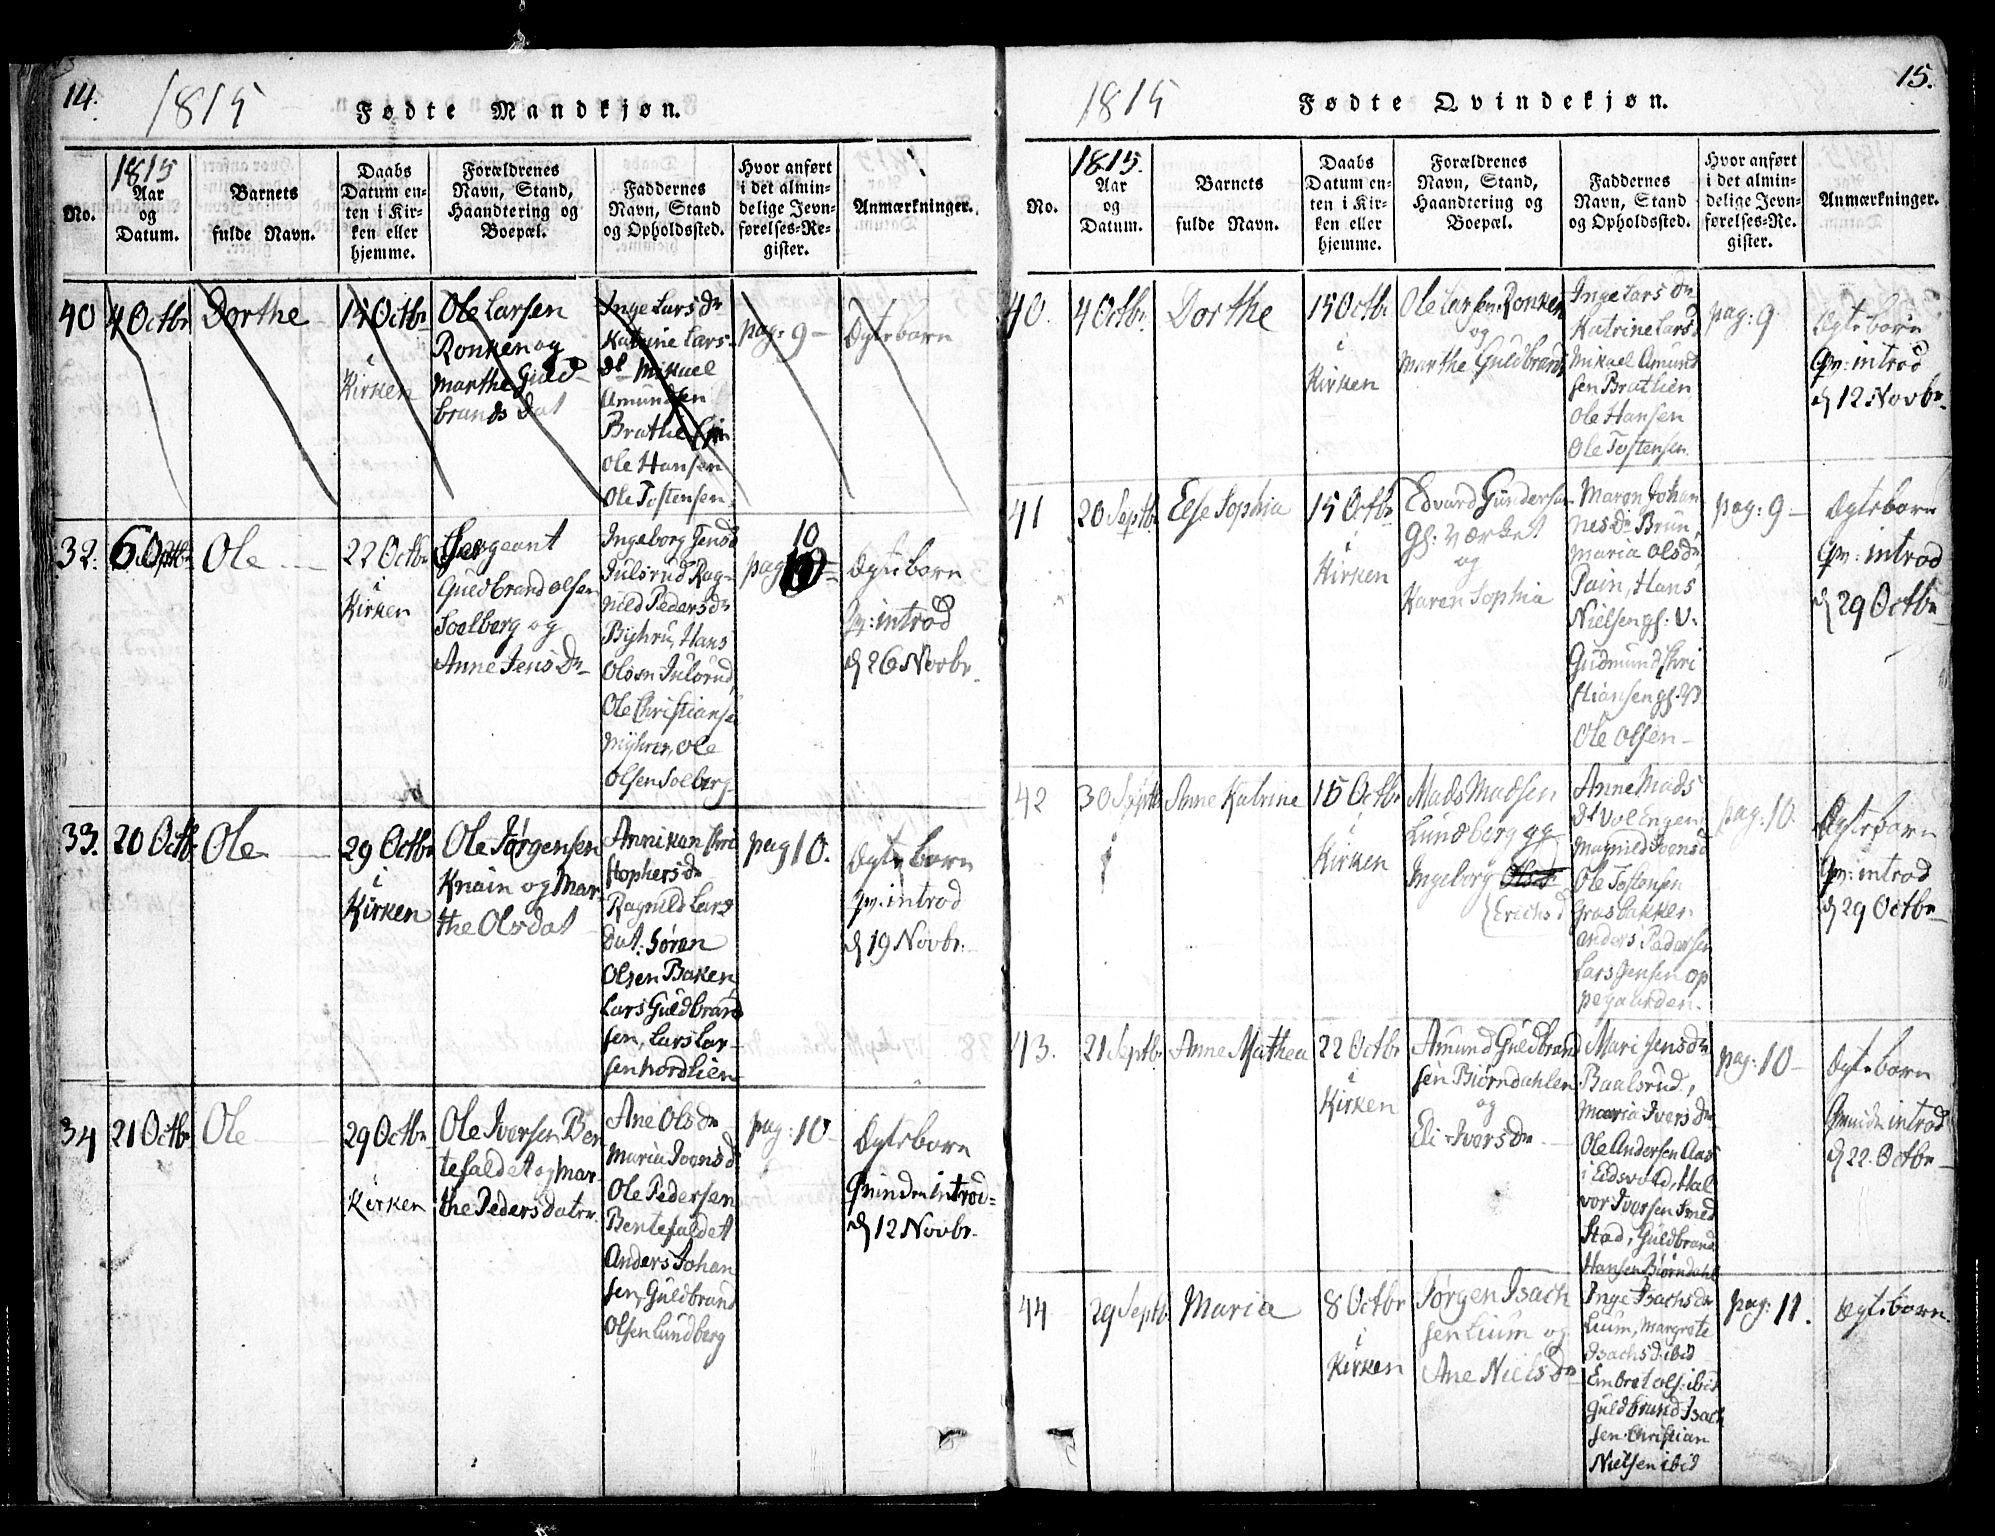 14.
1815
Fødte Mandkjøn.
No.
1815
Aar
og
Datum.
Barnets
fulde Navn.
Daabs
Datum en-
ten i Kir-
ken eller
hjemme.
Forældrenes
Navn, Stand,
Haandtering og
Boepæl.
Faddernes
Navn, Stand
og Opholdssted.
Hvor anført
i det almin-
delige Jevn-
førelses-Re-
gister.
Anmærkninger.
40
4 Octbr
Dorthe
15 Octbr
i
Kirken
Ole Larsen
Ronken og
Marthe Guld-
brands Dat
Inge Lars Dr
Katrine Lars-
dr Mikael
Amundsen
Brathlien
Ole Hansen
Ole Tostensen
pag: 9 -
Ægtebarn
32.
6 Septbr
Ole
22 Octbr
i
Kirken
Sergeant
Guldbrand Olsen
Soelberg og
Anne Jens Dr
Ingeborg Jensd
Julsrud Rag-
nild Peders Dr
Byhru, Hans
Olsen Julsrud,
Ole Christianse
Myhrer, Ole
Olsen Solberg
10
pag
Ægtebarn
Qv: introd
d 26 Novbr.
33.
20 Octb
Ole
29 Octbr
i
Kirken
Ole Jørgensen
Knain og Mar-
the Olsdat
Anniken Chri
stophers Dr
Ragnild Lars
Dat. Søren
Olsen Baken
Lars Guldbrand
sen, Lars Lar-
sen Nordlien
pag 10.
Ægtebarn
Qv: introd
d 19 Novbr.
34
21 Octbr
Ole
29 Octbr
i
Kirken
Ole Iversen Ben
tefaldet og Mar-
the Pedersdatr.
Ane Ols Dr
Maria Joensd
Ole Pedersen
Bentefaldet
Anders Johan
sen, Guldbrand
Olsen Lundberg
pag: 10
Ægtebarn
Qvinden introd=
d 12 Novbr.
15.
1815
Fødte Qvindekjøn.
No.
1815.
Aar
og
Datum.
Barnets
fulde Navn.
Daabs
Datum en-
ten i Kir-
ken eller
hjemme.
Forældrenes
Navn, Stand,
Haandtering og
Boepæl.
Faddernes
Navn, Stand
og Opholdssted.
Hvor anført
i det almin-
delige Jevn-
førelses-Re-
gister.
Anmærkninger.
40.
4 Octbr.
Dorthe
15 Octbr
i
Kirken
Ole Larsen Ronken
og
Marthe Guldbrands
Inge Lars Dr
Katrine Larsd
Mikael Amund
sen Brathlien
Ole Hansen
Ole Tostensen
pag: 9
Ægtebarn
Qv: introd
d 12 Novbr.
41
20 Septbr
Else Sophia
15 Octbr
i
Kirken
Edvard Gundersen
Gl: Værket
og
Karen Sophia
Maren Johan
nes Dr Brun,
Maria Olsdr
Pain, Hans
Nielsen gl. V.
Gudmund Chri
stiansen gl. V
Ole Olsen
pag: 9
Ægtebarn
Qv: introd
d 29 Octbr
42
30 Septb
Anne Katrine
15 Octbr
i
Kirken
Mads Madsen
Lundberg og
Ingeborg Olsdr
Erichsd
Anne Mads
Dr Vollngen
Magnild Joensd
Ole Tostensen
Grasbakken
Anders Pedersen
Lars Jensen Op
pegaarden.
pag: 10.
Ægtebarn
Qv: introd
d 29 Octbr
43.
21 Septbr
Anne Mathea
22 Octbr
i
Kirken
Amund Guldbrand
sen Biørndahlen
og
Eli Ivers Dr
Mari Jensdr
Baalsrud,
Maria Ivers Dr
Ole Andersen Aas
i Eidsvold, Hal
vor Iversen Smed
stad, Guldbrand
Hansen Biørndahl
pag: 10
Ægtebarn
Qvind introd
d 22. Octbr
44
29 Septb.
Maria
8 Octbr
i
Kirken
Jørgen Isach
sen Lium og
Ane Niels Dr
Inge Isachs Dr
Lium, Margrete
Isachsd. ibid
Embret Ols: ibid
Guldbrand Isach
sen. Christian
Nielsen ibid
pag: 11.
Ægtebarn